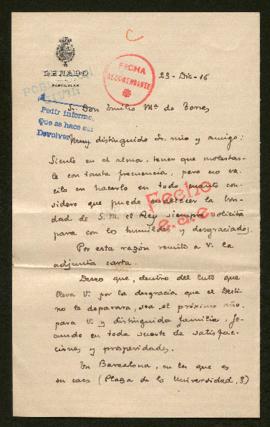 C
SENADO
PARTICULAR
FECHA
23-Dic-16
Sr. Don Emilio Mª de Torres
Pedir informe,
Que se hace sin
Devolver
Muy distinguido Sr. mío y amigo:
Siento en el alma, tener que molestarle
con tanta frecuencia, pero no va-
cilo en hacerlo en todo cuanto con-
sidero que puede ofrecer la bon-
dad de S. M. el Rey siempre solícita
para con los humildes y desgraciados.
Por esta razón remito a V. la
adjunta carta.
Fecha
Deseo que, dentro del luto que
lleva V. por la desgracia que el Desti-
no le deparara, sea el próximo año,
para V. y distinguida familia, fe-
cundo en toda suerte de satisfac-
ciones y prosperidades.
En Barcelona, en las que es
su casa (Plaza de la Universidad,